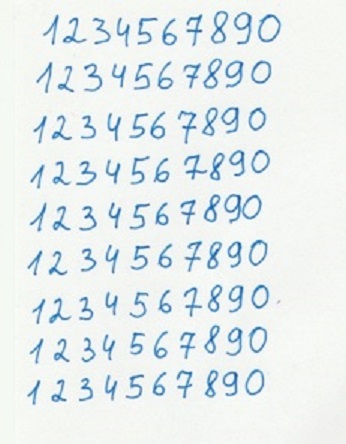 1234567890
1234567890
1234567890
1234567890
1234567890
1234567890
1234567890.
1234567890
1234567890